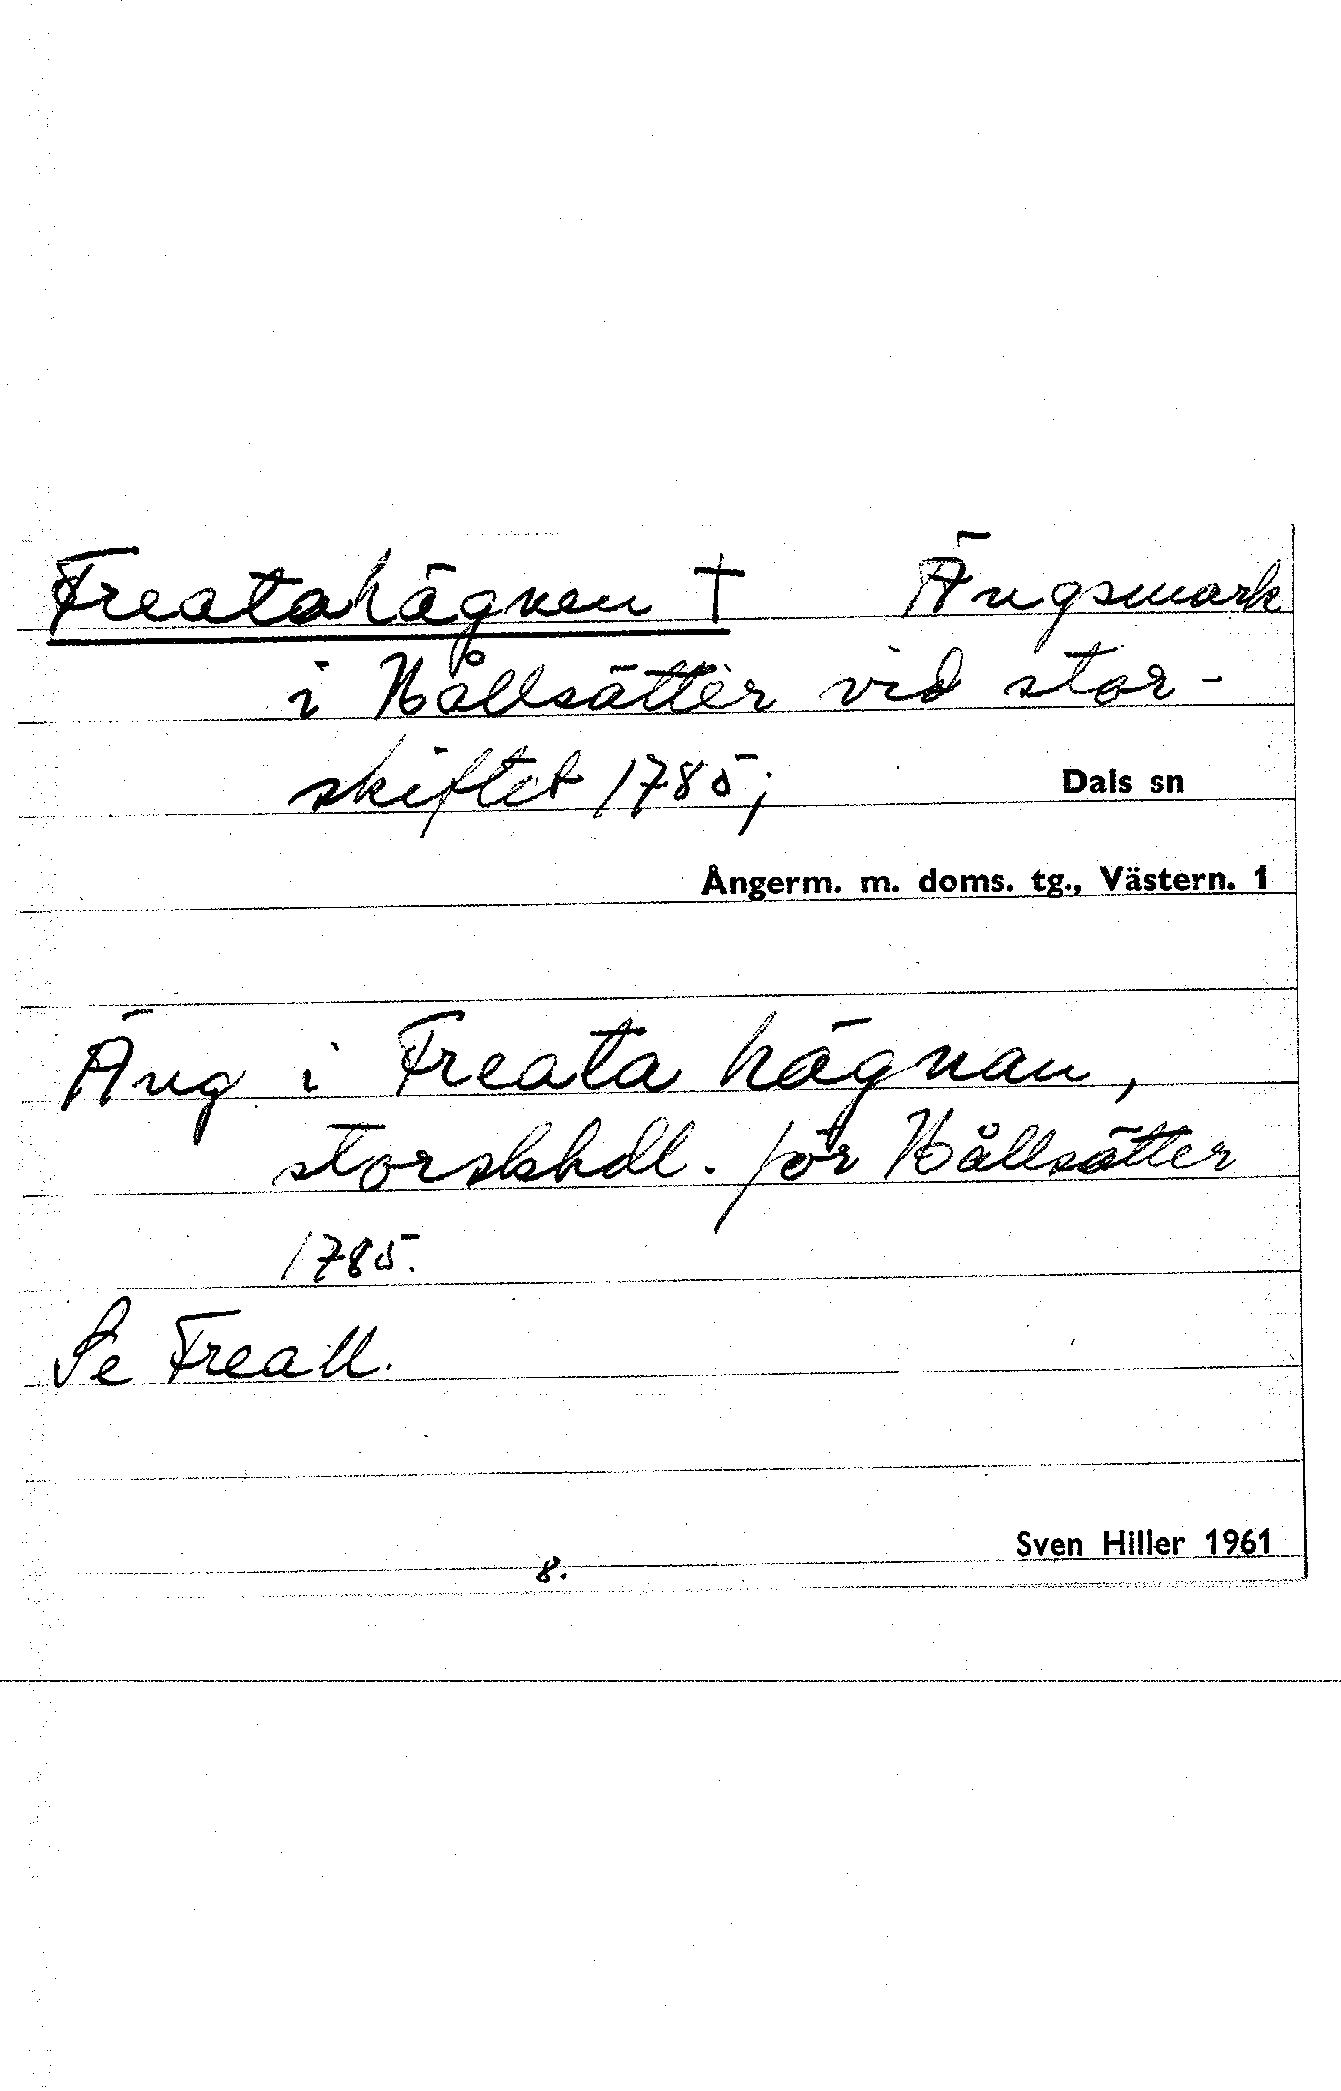 Freatahägnen † Ängsmark
i Hållsätter vid stor-
skiftet 1785;
Dals sn
Ångerm. m. doms. tg., Västern. 1
Äng i Freata hägnan,
storskhdl. för Hållsätter
1785.
Se Freall.
Sven Hiller 1961
8.